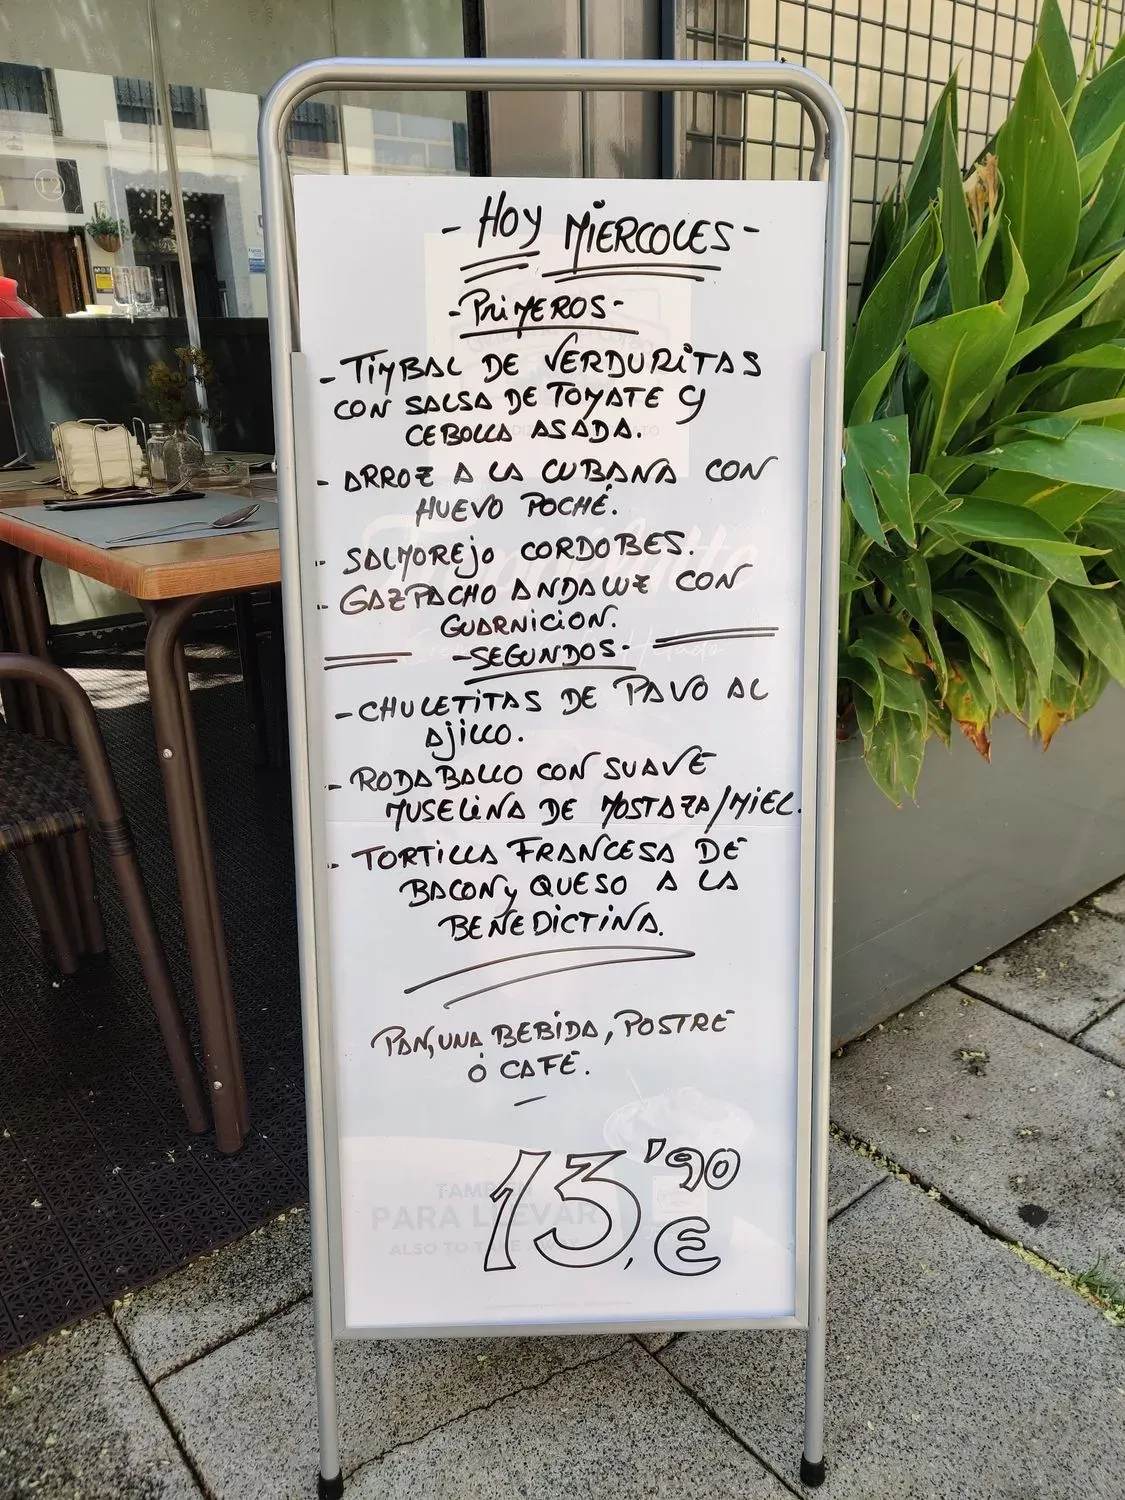 - HOY MIERCOLES -
- PRIMEROS -
- TIMBAL DE VERDURITAS
CON SALSA DE TOMATE Y
CEBOLLA ASADA.
- ARROZ A LA CUBANA CON
HUEVO POCHÉ.
- SALMOREJO CORDOBES.
- GAZPACHO ANDALUZ CON
GUARNICION.
- SEGUNDOS -
- CHULETITAS DE PAVO AL
AJILLO.
- RODABALLO CON SUAVE
MUSELINA DE MOSTAZA/MIEL.
- TORTILLA FRANCESA DE
BACON y QUESO A LA
BENEDICTINA.
PAN, UNA BEBIDA, POSTRE
Ó CAFÉ.
13,'90
€
TAMBIÉN
PARA LLEVAR
ALSO TO TAKE AWAY
12